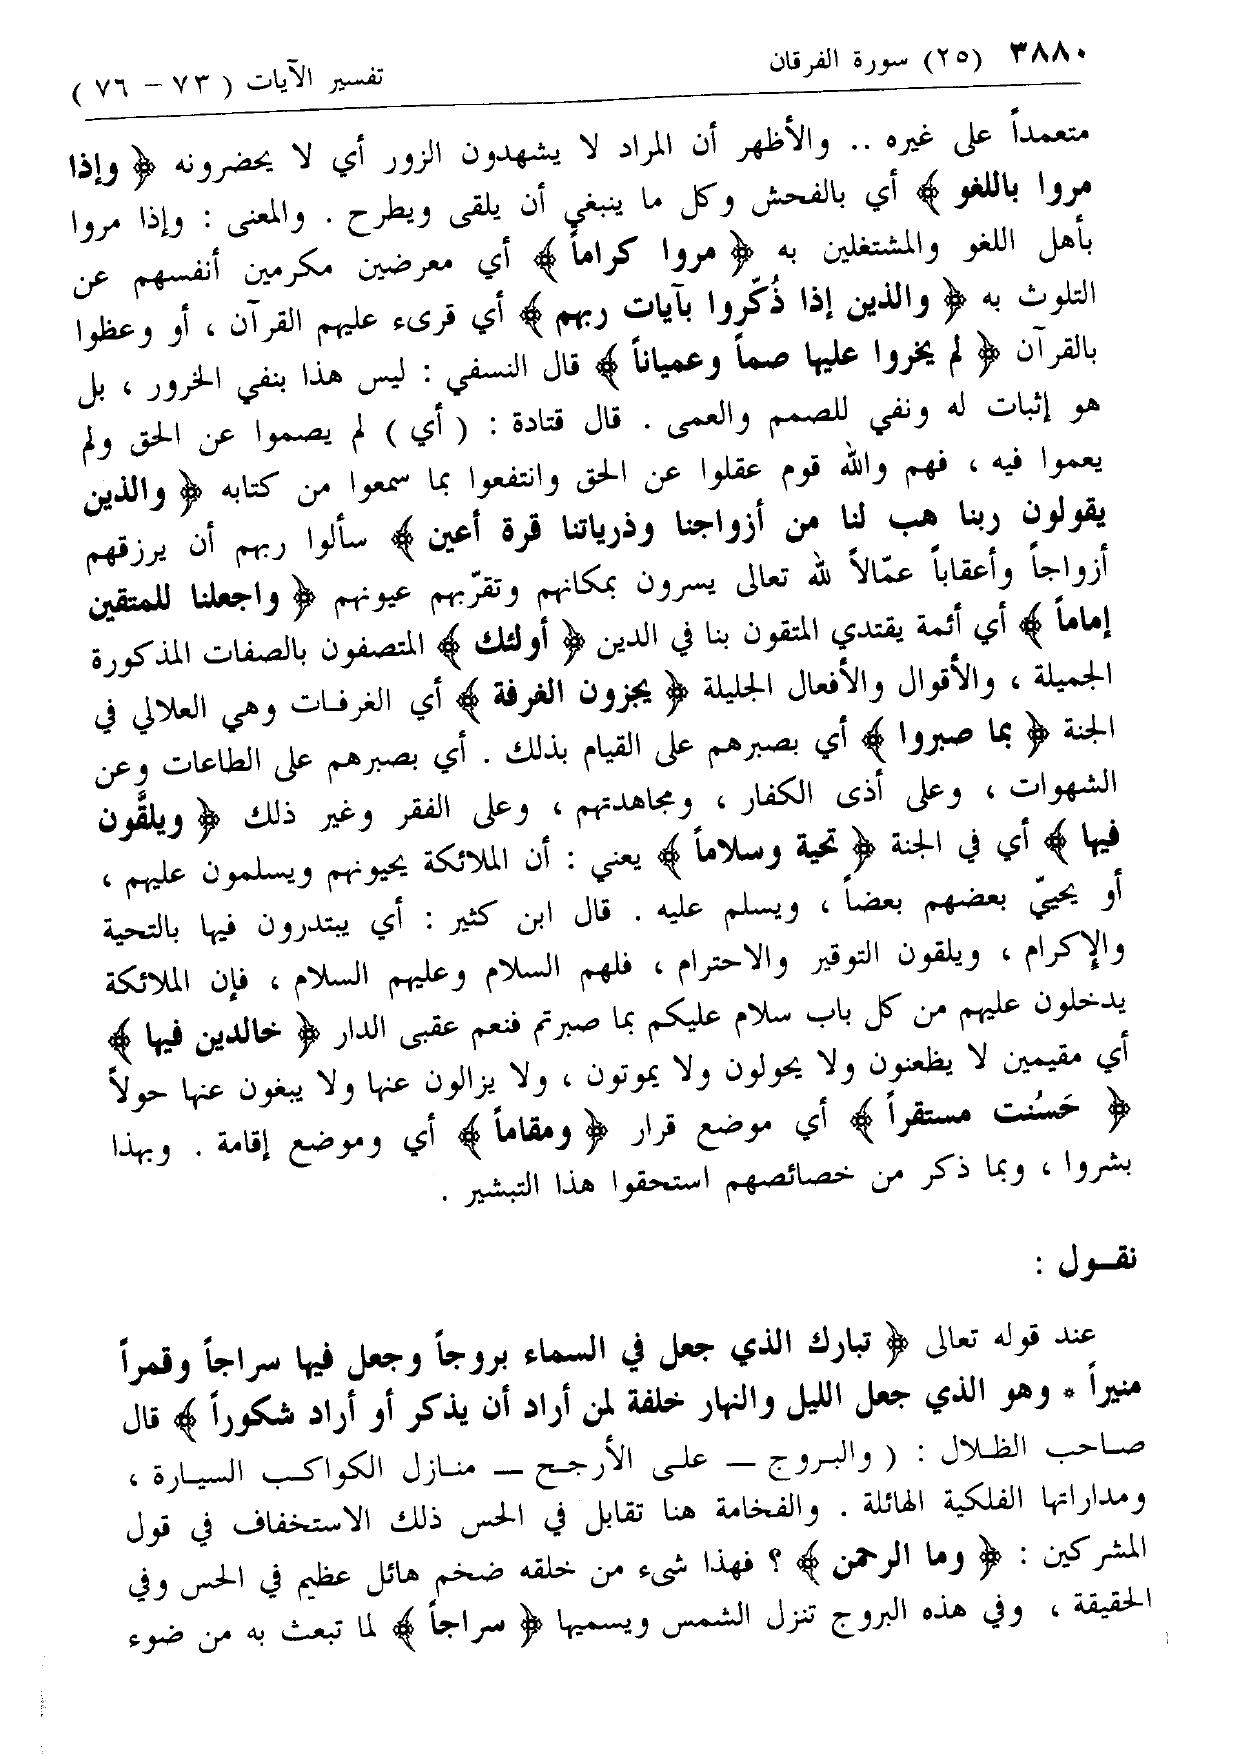 ٣٨٨٠ (٢٥) سورة الفرقان تفسير الآيات ( ٧٣ – ٧٦ )
متعمداً على غيره .. والأظهر أن المراد لا يشهدون الزور أي لا يحضرونه ﴿ وإذا
مروا باللغو ﴾ أي بالفحش وكل ما ينبغي أن يلقى ويطرح . والمعنى : وإذا مروا
بأهل اللغو والمشتغلين به ﴿ مروا كراماً ﴾ أي معرضين مكرمين أنفسهم عن
التلوث به ﴿ والذين إذا ذُكّروا بآيات ربهم ﴾ أي قرىء عليهم القرآن ، أو وعظوا
بالقرآن ﴿ لم يخروا عليها صماً وعمياناً ﴾ قال النسفي : ليس هذا بنفي الخرور ، بل
هو إثبات له ونفي للصمم والعمى . قال قتادة : ( أي ) لم يصموا عن الحق ولم
يعموا فيه ، فهم والله قوم عقلوا عن الحق وانتفعوا بما سمعوا من كتابه ﴿ والذين
يقولون ربنا هب لنا من أزواجنا وذرياتنا قرة أعين ﴾ سألوا ربهم أن يرزقهم
أزواجاً وأعقاباً عمّالاً لله تعالى يسرون بمكانهم وتقرّبهم عيونهم ﴿ واجعلنا للمتقين
إماماً ﴾ أي أئمة يقتدي المتقون بنا في الدين ﴿ أولئك ﴾ المتصفون بالصفات المذكورة
الجميلة ، والأقوال والأفعال الجليلة ﴿ يجزون الغرفة ﴾ أي الغرفات وهي العلالي في
الجنة ﴿ بما صبروا ﴾ أي بصبرهم على القيام بذلك . أي بصبرهم على الطاعات وعن
الشهوات ، وعلى أذى الكفار ، ومجاهدتهم ، وعلى الفقر وغير ذلك ﴿ ويلقَّون
فيها ﴾ أي في الجنة ﴿ تحية وسلاماً ﴾ يعني : أن الملائكة يحيونهم ويسلمون عليهم ،
أو يحييّ بعضهم بعضاً ، ويسلم عليه . قال ابن كثير : أي يبتدرون فيها بالتحية
والإكرام ، ويلقون التوقير والاحترام ، فلهم السلام وعليهم السلام ، فإن الملائكة
يدخلون عليهم من كل باب سلام عليكم بما صبرتم فنعم عقبى الدار ﴿ خالدين فيها ﴾
أي مقيمين لا يظعنون ولا يحولون ولا يموتون ، ولا يزالون عنها ولا يبغون عنها حولاً
﴿ حَسُنت مستقراً ﴾ أي موضع قرار ﴿ ومقاماً ﴾ أي وموضع إقامة . وبهذا
بشروا ، وبما ذكر من خصائصهم استحقوا هذا التبشير .
نقـول :
عند قوله تعالى ﴿ تبارك الذي جعل في السماء بروجاً وجعل فيها سراجاً وقمراً
منيراً * وهو الذي جعل الليل والنهار خلفة لمن أراد أن يذكر أو أراد شكوراً ﴾ قال
صاحب الظلال : ( والبروج – على الأرجح – منازل الكواكب السيارة ،
ومداراتها الفلكية الهائلة . والفخامة هنا تقابل في الحس ذلك الاستخفاف في قول
المشركين : ﴿ وما الرحمن ﴾ ؟ فهذا شيء من خلقه ضخم هائل عظيم في الحس وفي
الحقيقة ، وفي هذه البروج تنزل الشمس ويسميها ﴿ سراجاً ﴾ لما تبعث به من ضوء